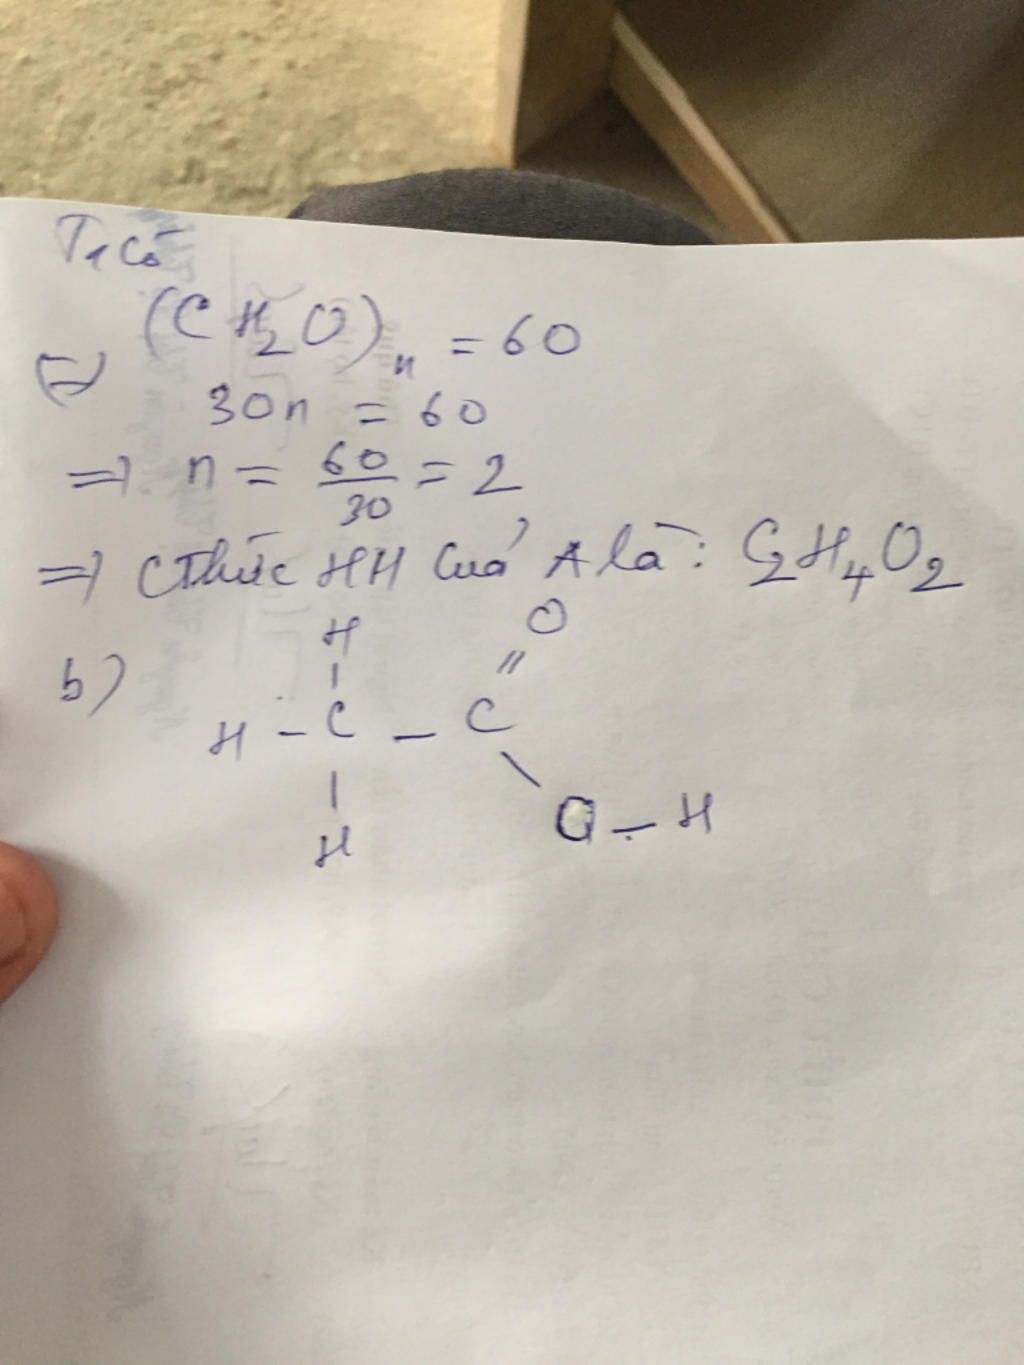 Ta có
(CH2O)n = 60
(=) 30n = 60
=> n = 60/30 = 2
=> CThức HH Cuả A là: C2H4O2
H O
b) | //
H - C - C
| \
H O - H